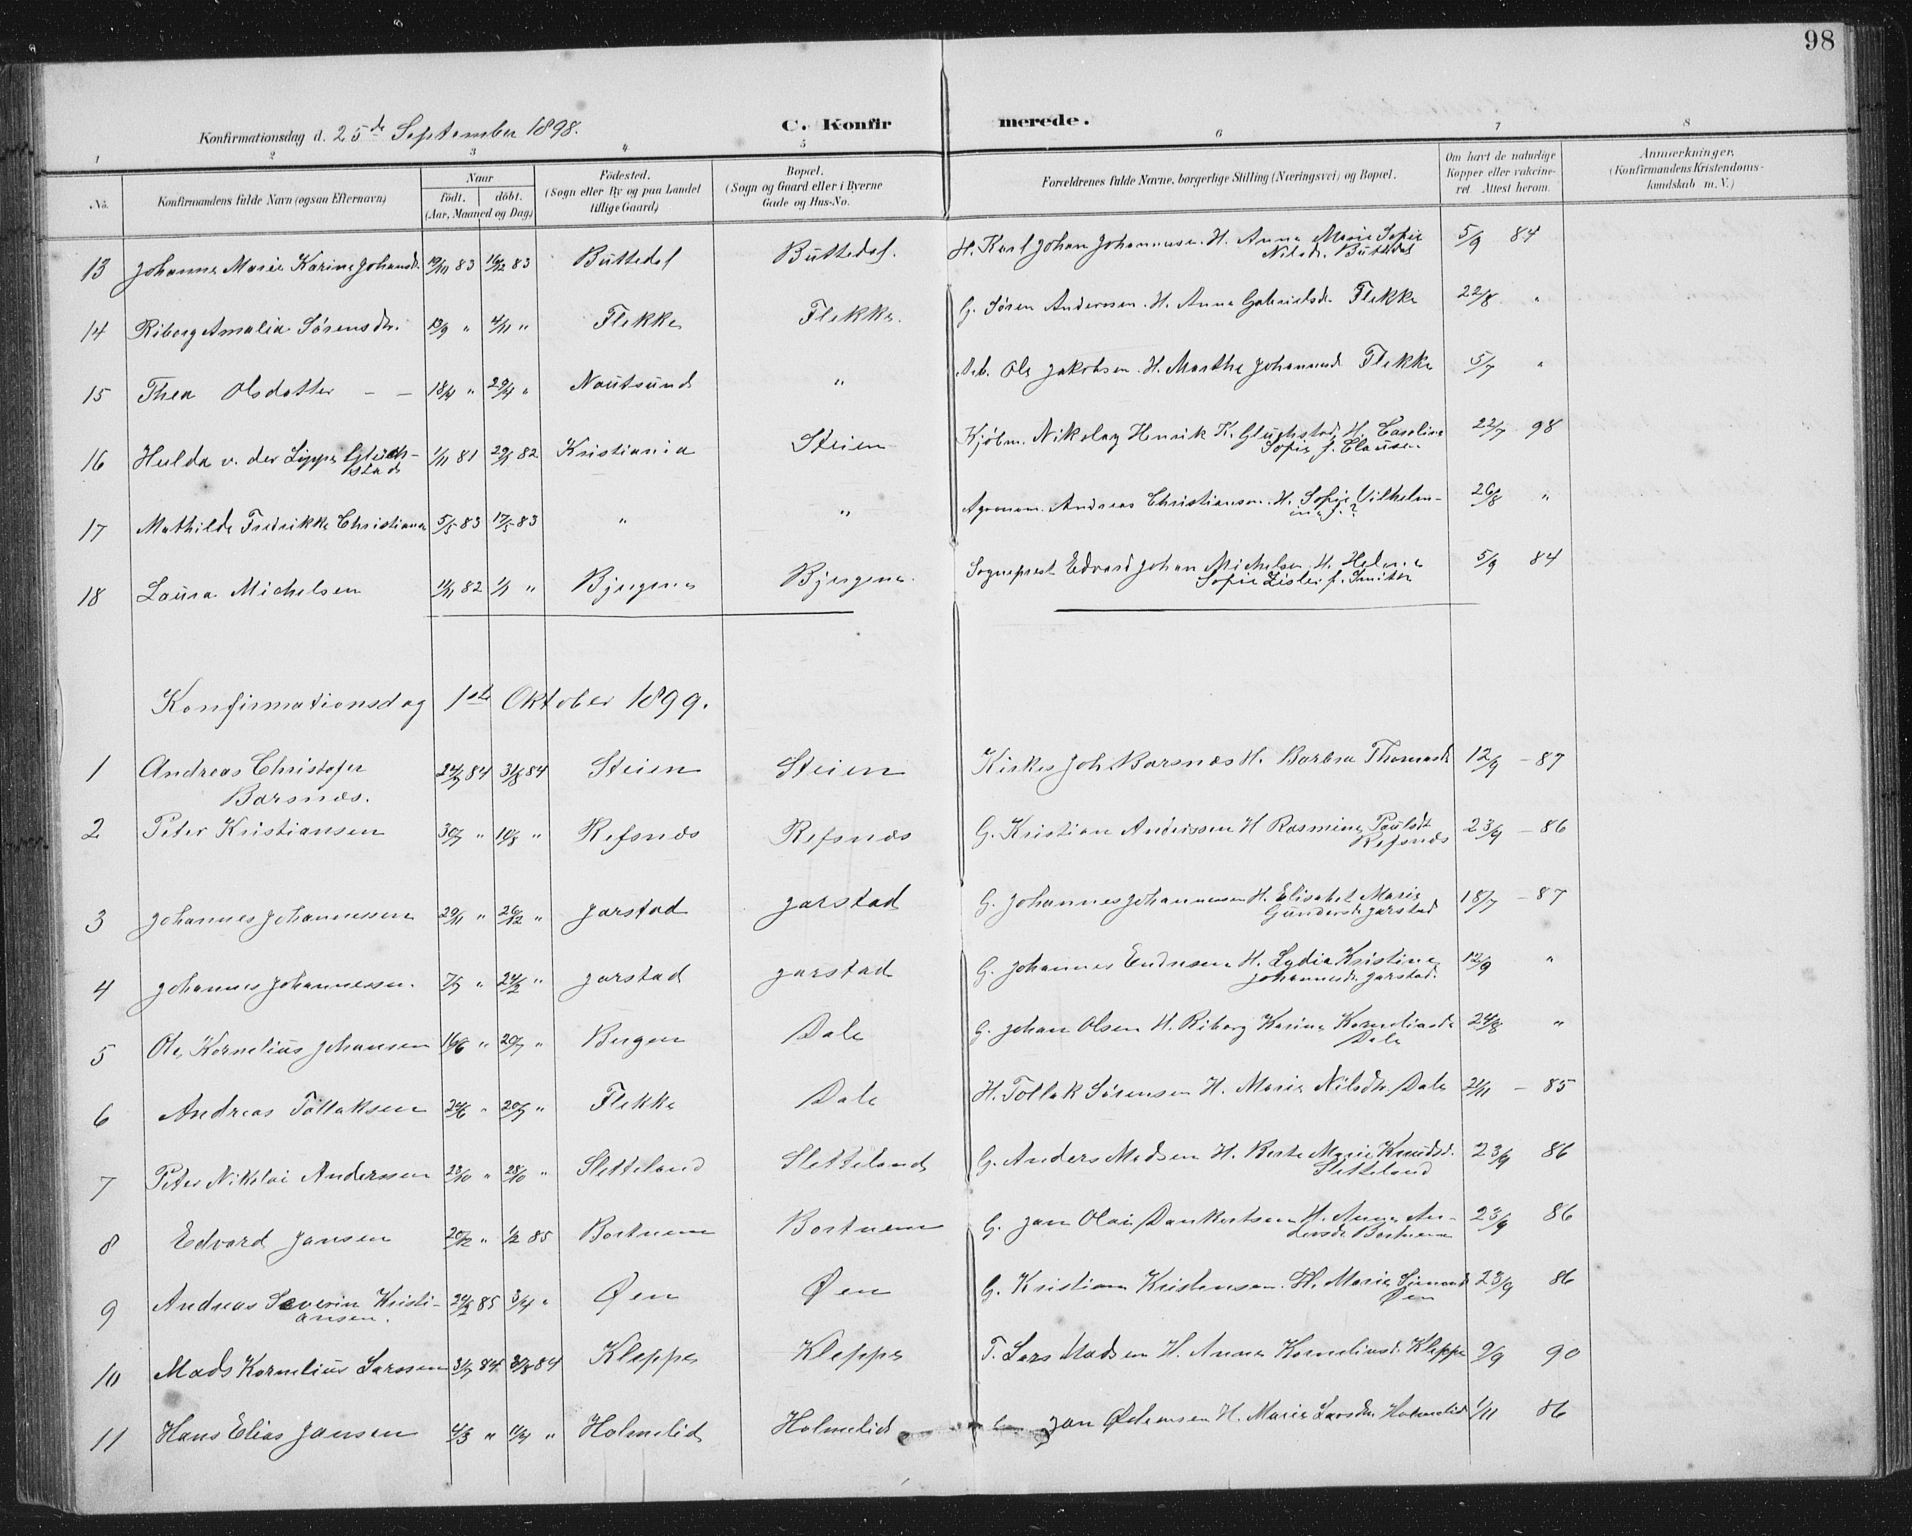 98
Konfirmationsdag d. 25de September 1898.
C. Konfirmerede.
1 2 3 4 5 6 7 8
No.
Konfirmandens fulde Navn (ogsaa Efternavn)
Naar
født. døbt.
(Aar, Maaned og Dag)
Fødested.
(Sogn eller By og paa Landet
tillige Gaard)
Bopæl.
(Sogn og Gaard eller i Byerne
Gade og Hus-No.
Forældrenes fulde Navne, borgerlige Stilling (Næringsvei) og Bopæl.
Om havt de naturlige
Kopper eller vakcine-
ret. Attest herom.
Anmærkninger.
(Konfirmandens Kristendoms-
kundskab m. V.)
13 Johanne Marie Karine Johansdr. 83 16/12 83 Buttedal Buttedal. H. Karl Johan Johannesen. H. Anna Marie Sofie 5/9 84
Nilsdr. Buttedal
14 Riborg Amalia Sørensdr. " 4/11 " Flekke Flekke. G. Søren Anderssen. H. Anna Gabrielsdr. Flekke 22/8 "
15 Thea Olsdatter – – 18/4 " 29/4 " Nautsund " Arb. Ole Jakobsen. H. Marthe Johannesd. Flekke 5/7 "
16 Hulda v. der Lippe Glück- 1/11 81 82 Kristiania Steien Kjøbm. Nikolay Henrik K. Glückstad, H. Caroline 22/7 98
stad Sofie f. Clausen
17 Mathilde Fredrikke Christiansen 5/5 83 17/5 83 " " Agronom. Andreas Christiansen. H. Sofie Vilhelm- 26/8 "
ine f. ?
18 Laura Michelsen 82 1/1 " Bjergene Bjergene. Sogneprest Edvard Johan Michelsen H. Helene 5/9 84
Sofie f. Smith
Konfirmationsdag 1ste Oktober 1899.
1 Andreas Christofer 24/7 84 31/8 84 Steien Steien Kirkes. Joh. Barsnæs H. Barbra Thomasdr. 12/9 – 87
Barsnæs.
2 Peter Kristiansen 30/7 " 10/8 " Refsnæs Refsnæs G. Kristian Anderssen H. Rasmine Paulsdr. 23/9 – 86
Refsnæs
3 Johannes Johannessen 29/11 " 26/12 " Jarstad Jarstad G. Johannes Johannessen H. Elisabet Marie 18/7 – 87
Gundersdr. Jarstad
4 Johannes Johannessen. " 24/2 " Jarstad Jarstad G. Johannes Endresen H. Lydia Kristine 12/9 "
Johannesdr. Jarstad.
5 Ole Kornelius Johansen 16/6 " 20/7 " Bergen Dale G. Johan Olsen H. Riborg Karine Korneliusdr. 24/8 "
Dale
6 Andreas Tollaksen 24/6 " 20/7 " Flekke Dale H. Tollak Sørensen H. Marie Nilsdr. Dale 21/11 – 85
7 Peter Nikolai Anderssen " 28/10 " Sletteland Sletteland G. Anders Madsen H. Berte Marie Knudsd. 23/9 86
Sletteland
8 Edvard Jansen 20/12 " 1/2 85 Bortnem Bortnem G. Jan Olai Dankertsen H. Anna An- 23/9 86
dersdr Bortnem
9 Andreas Severin Kristi- 24/2 85 3/4 " Øen Øen G. Kristian Kristensen. H. Marie Simonsdr. 23/9 86
ansen. Øen
10 Mads Kornelius Larssen 31/7 84 31/8 84 Kleppe Kleppe T. Lars Madsen H. Anna Korneliusdr. Kleppe 9/9 90
11 Hans Elias Jansen 4/3 " " Holmelid Holmelid Jan H. Marie Larsdr. Holmelid 1/11 86